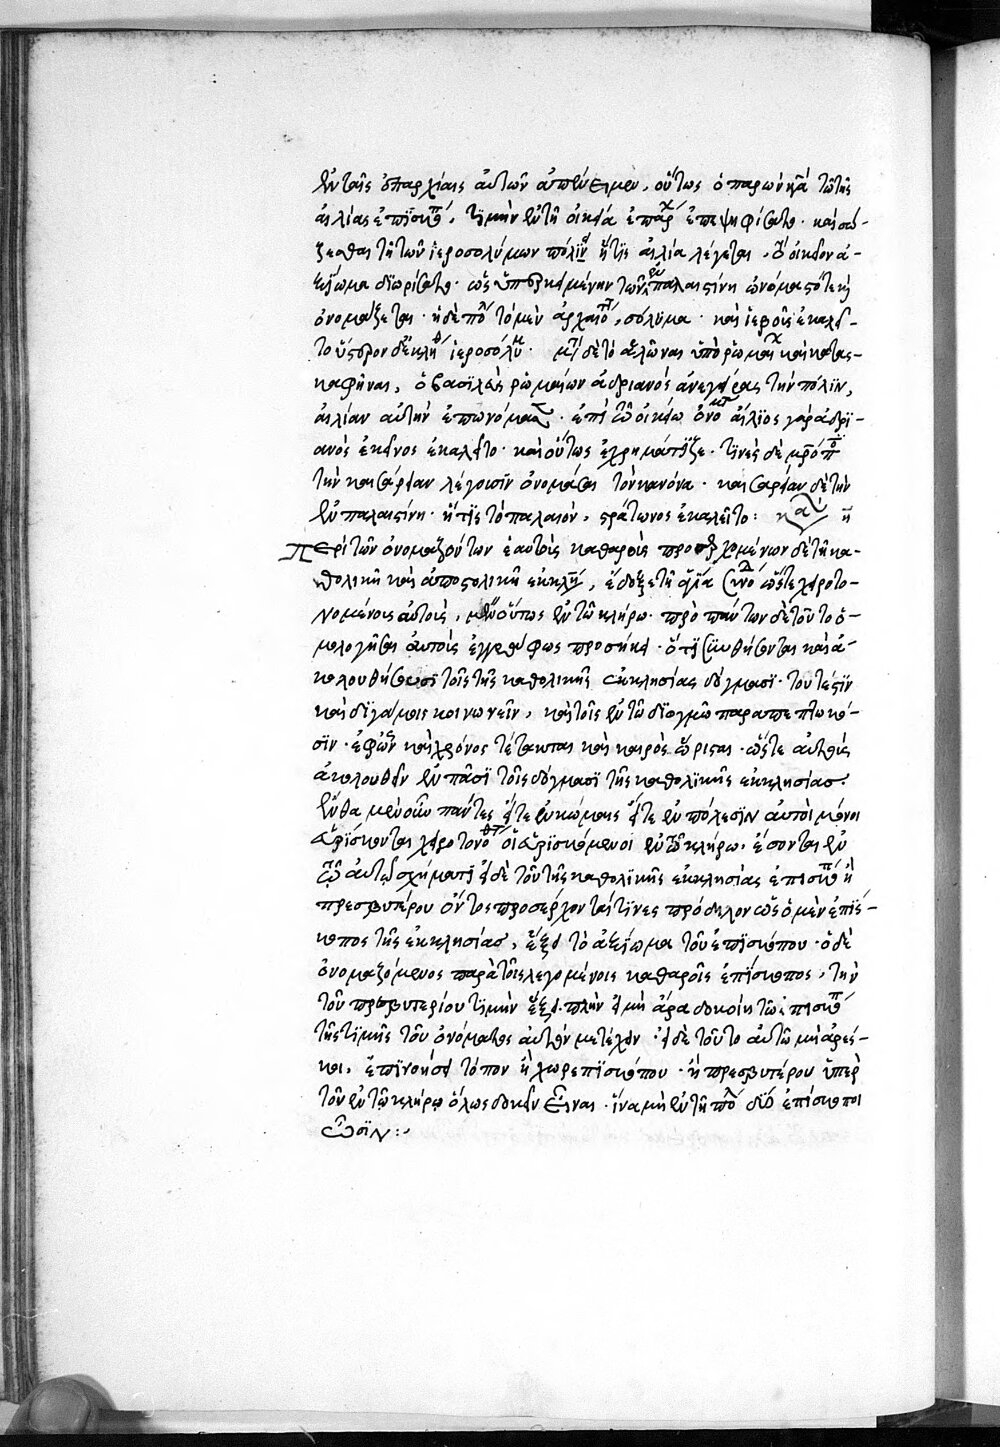 ἐν ταῖς ἐπαρχίαις αὐτῶν ἀπένειμεν, οὕτως ὁ παρὼν τῷ τῆς
αἰλίας ἐπισκό, τιμὴν ἐν τῇ οἰκεία ἐπαρχ ἐπεψηφίσατο. καὶ σώ-
ζεσθαι τῇ τῶν ἱεροσολύμων πόλιν ἥτις αἰλία λέγεται, οἰκεῖον ἀ-
ξίωμα διωρίσατο. ὡς ὑποκειμένην τῶν ἐν παλαιστίνη
ὀνομάζεται. ἡ δὲ πόλ τὸ μὲν ἀρχαῖον, σόλυμα. καὶ ἱεβοῦς ἐκαλεῖ-
το ὕστερον δὲ ἐκλήθ ἱεροσόλυμ. μετ δὲ τὸ ἁλῶναι ὑπὸ ῥωμαι καὶ κατασ-
καφῆναι, ὁ βασιλεὺς ῥωμαίων ἀδριανὸς ἀνεγείρας τὴν πόλιν,
αἰλίαν αὐτὴν ἐπωνόμασ. ἐπὶ τῶ οἰκείω ὀνόματ αἴλιος γὰρ ἀδρι-
ανὸς ἐκεῖνος ἐκαλεῖτο. καὶ οὕτως ἐχρημάτιζε. τινὲς δὲ μητρόπο
τὴν καισάρειαν λέγουσιν ὀνομάσαι τὸν κανόνα. καισάρειαν δὲ τὴν
ἐν παλαιστίνη. ἥτις τὸ παλαιὸν, στράτωνος ἐκαλεῖτο: κα η
Περὶ τῶν ὀνομαζόντων ἑαυτοὺς καθαροὺς προσερχομένων δὲ τῇ κα-
θολικῇ καὶ ἀποστολικῇ ἐκκλη, ἔδοξε τῇ ἁγία συνόδ ὥστε χειροτο-
νομένοις αὐτοὺς, μένειν οὕτως ἐν τῶ κλήρω. πρὸ πάντων δὲ τοῦτο ὁ-
μολογῆσαι αὐτοὺς ἐγγράφως προσήκει. ὅτι συνθήσονται καὶ ἀ-
κολουθήσουσι τοῖς τῆς καθολικῆς ἐκκλησίας δόγμασι. τουτέστιν
καὶ διγάμοις κοινωνεῖν, καὶ τοῖς ἐν τῶ διογμῶ παραπεπτωκό-
σιν. ἐφ' ὧν καὶ χρόνος τέτακται καὶ καιρὸς ὥρισται. ὥστε αὐτοὺς
ἀκολουθεῖν ἐν πᾶσι τοῖς δόγμασι τῆς καθολικῆς ἐκκλησίας.
ἔνθα μὲν οὖν πάντες εἴτε ἐν κώμαις εἴτε ἐν πόλεσιν αὐτοὶ μόνοι
εὑρίσκονται χειροτονηθ οἱ εὑρισκόμενοι ἐν τῶ κλήρω. ἔσονται ἐν
τῷ αὐτῷ σχήματι εἰ δὲ τοῦ τῆς καθολικῆς ἐκκλησίας ἐπισκό ἢ
πρεσβυτέρου ὄντος προσέρχονταί τινες πρόδηλον ὡς ὁ μὲν ἐπίσ-
κοπος τῆς ἐκκλησίας, ἕξει τὸ ἀξίωμα τοῦ ἐπισκόπου. ὁ δὲ
ὀνομαζόμενος παρὰ τοῖς λεγομένοις καθαροῖς ἐπίσκοπος, τὴν
τοῦ πρεσβυτερίου τιμὴν ἕξει. πλὴν εἰ μὴ ἄρα δοκοίη τῶ ἐπισκό
τῆς τιμῆς τοῦ ὀνόματος αὐτὸν μετέχειν. εἰ δὲ τοῦτο αὐτῶ μὴ ἀρέσ-
κοι, ἐπινοήσει τόπον ἢ χωρεπισκόπου. ἢ πρεσβυτέρου ὑπὲρ
τοῦ ἐν τῷ κλήρῳ ὅλως δοκεῖν εἶναι. ἵνα μὴ ἐν τῇ πόλ δύο ἐπίσκοποι
ὦσιν: